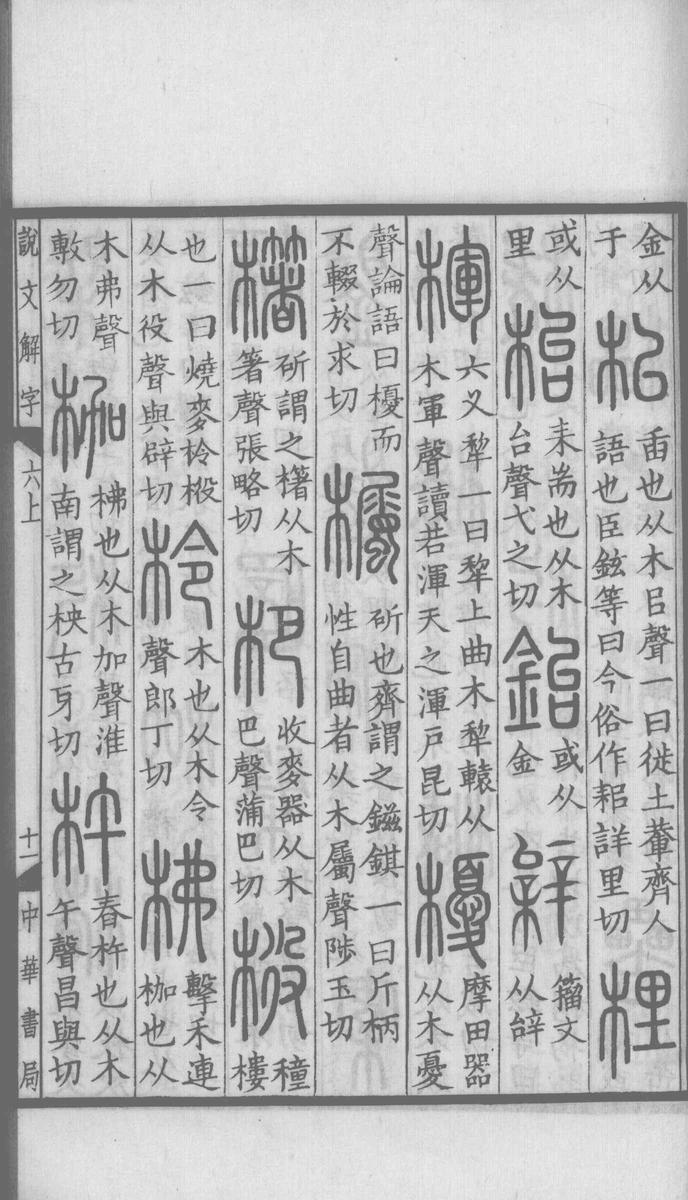 金从于𣏌臿也从木㠯聲一曰徙土輂齊人語也臣鉉等曰今俗作耜詳里切梩
或从里枱耒耑也从木台聲弋之切鈶或从金𨐗籒文从辝
楎六叉犂一曰犂上曲木犂轅从木軍聲讀若渾天之渾戸昆切櫌摩田器从木憂
聲論語曰櫌而不輟於求切欘斫也齊謂之鎡錤一曰斤柄性自曲者从木屬聲陟玉切
櫡斫謂之櫡从木箸聲張略切杷收麥器从木巴聲蒲巴切㭜穜樓
也一曰燒麥柃㭜从木役聲與辟切柃木也从木令聲郎丁切柫擊禾連枷也从
木弗聲敷勿切枷柫也从木加聲淮南謂之柍古牙切杵舂杵也从木午聲昌與切
說文解字 六上 十一 中華書局